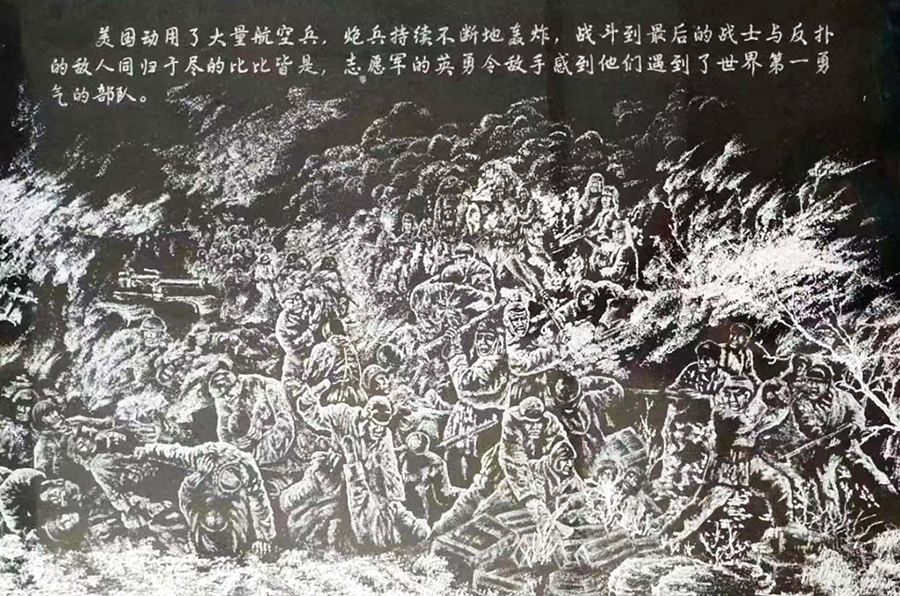 美国动用了大量航空兵，炮兵持续不断地轰炸，战斗到最后的战士与反扑
的敌人同归于尽的比比皆是，志愿军的英勇令敌手感到他们遇到了世界第一勇
气的部队。